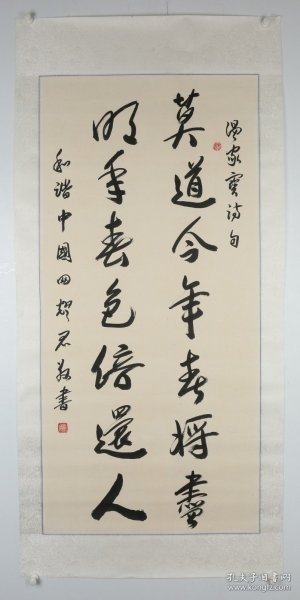 温家宝诗句
莫道今年春将尽
明年春色倍還人
和谐中國田耀君敬書
孔夫子旧书网